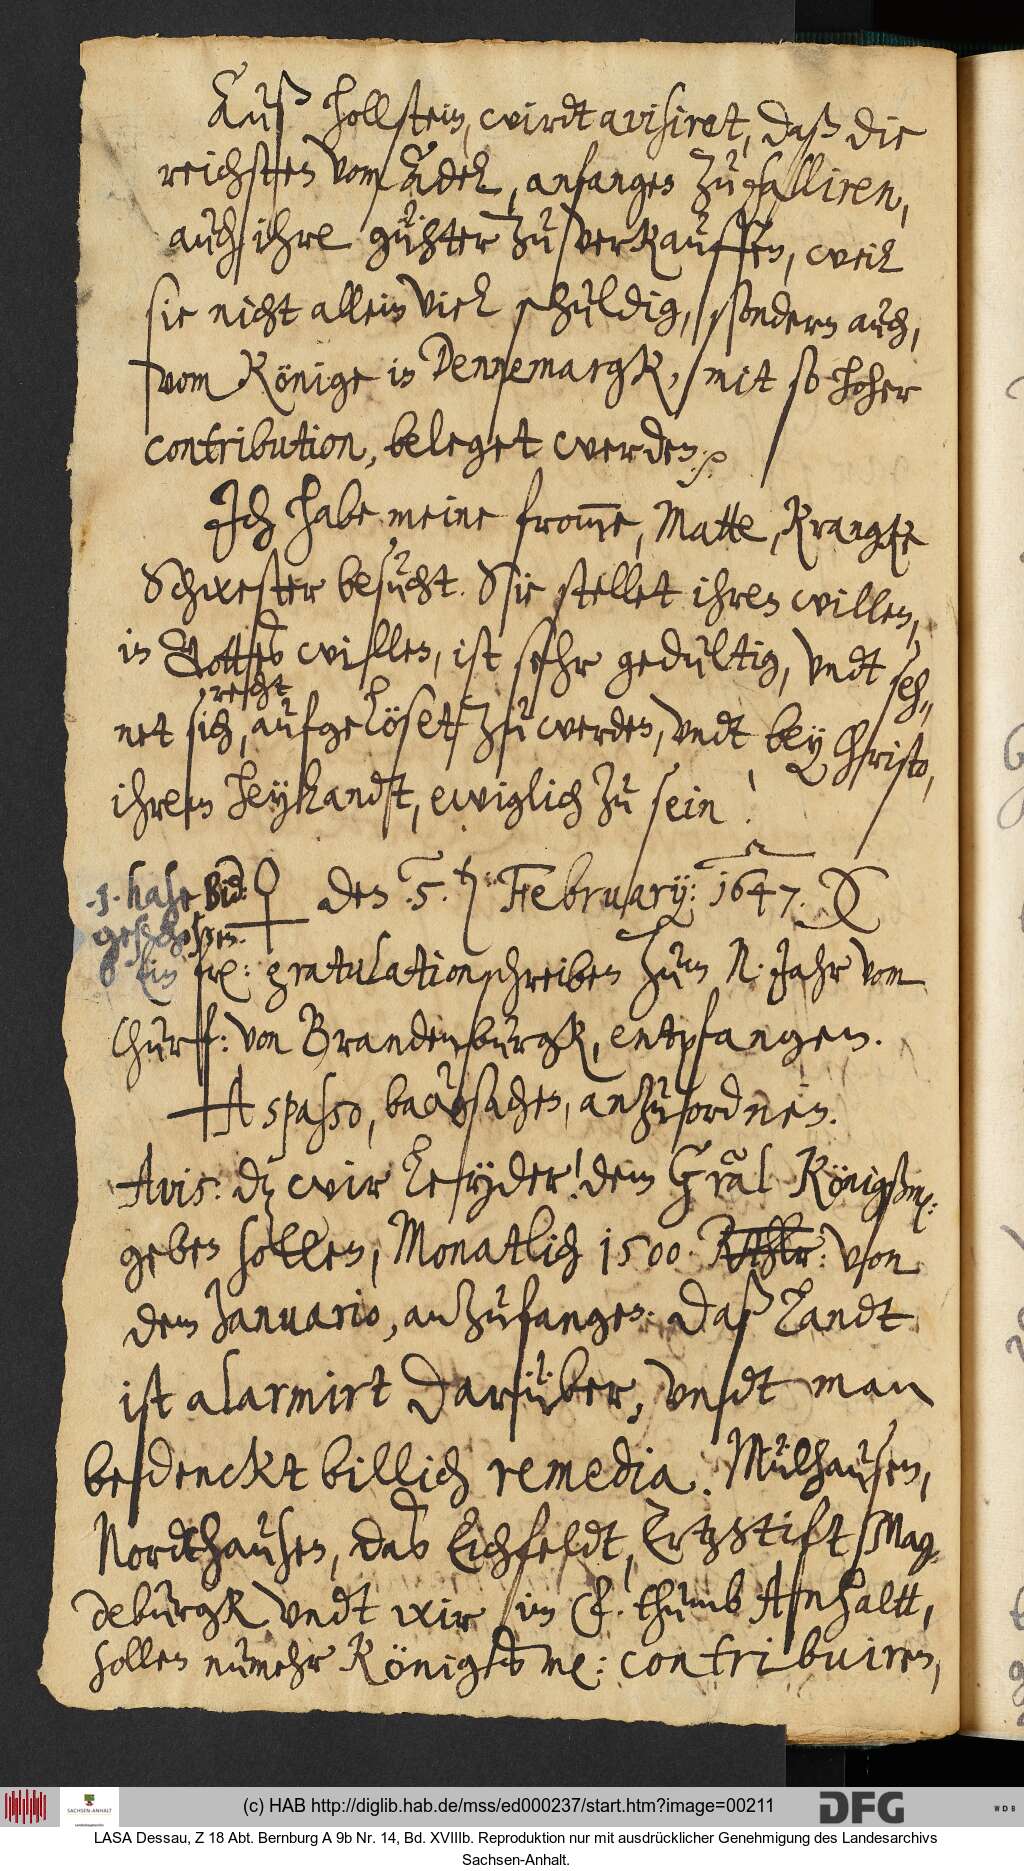 Auß Hollstein, wirdt avisiret, daß die
reichsten vom Adel, anfangen zu falliren,
auch ihre gühter zu verkauffen, weil
sie nicht allein viel schuldig, sondern auch,
vom Könige in Dennemargk, mit so hoher
contribution, beleget werden.
Ich habe meine from̄e, Matte, Krangke
Schwester besucht. Sie stellet ihren willen,
in Gottes willen, ist sehr gedultig, undt seh„
recht
net sich, aufgelöset zu werden, undt bey Christo,
ihrem Heylandt, ewiglich zu sein!
♀ den .5. ten: February: 1647.
.1. hase Bid:
geschoßen.
Ein gratulationschreiben zum N: Jahr vom
Churf: von Brandenburgk, entpfangen.
A spasso, bausachen, anzuordnen.
Avis: dz wir leyder! dem Gräl Königßm:
geben sollen, Monatlich 1500 Rthlr: von
dem Januario, anzufangen: daß Landt
ist alarmirt darüber, undt man
bedenckt billich remedia. Mülhausen,
Nordthausen, das Eichfeldt, Ertzstift Mag„
deburgk undt wir im F. thumb Anhaltt,
sollen numehr Königsm: contribuiren,
(c) HAB http://diglib.hab.de/mss/ed000237/start.htm?image=00211
DFG
WDB
SACHSEN-ANHALT
LASA Dessau, Z 18 Abt. Bernburg A 9b Nr. 14, Bd. XVIIIb. Reproduktion nur mit ausdrücklicher Genehmigung des Landesarchivs
Sachsen-Anhalt.